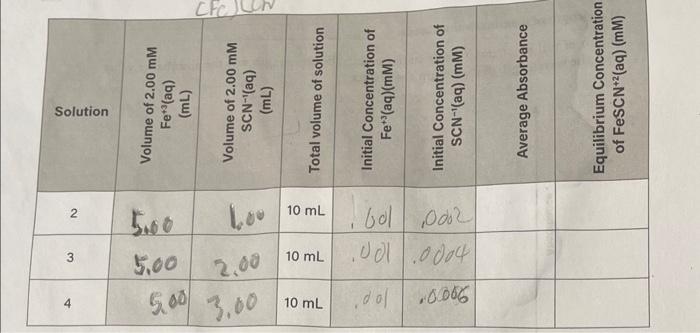 Solution
Volume of 2.00 mM
Fe+3(aq)
(mL)
Volume of 2.00 mM
SCN-1(aq)
(mL)
Total volume of solution
Initial Concentration of
Fe+3(aq)(mM)
Initial Concentration of
SCN-1(aq) (mM)
Average Absorbance
Equilibrium Concentration
of FeSCN+2(aq) (mM)
2 5.00 1.00 10 mL .001 .0002
3 5.00 2.00 10 mL .001 .0004
4 5.00 3.00 10 mL .001 .0006